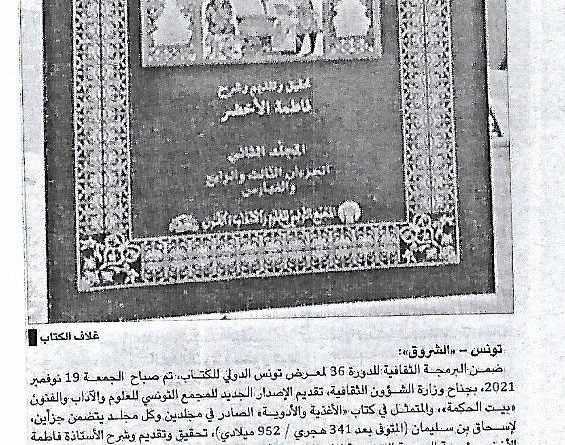 تحقيق وتقديم وشرح
فاطمة الأخضر
المجلد الثاني
الجزءان الثالث والرابع
والفهارس
المجمع التونسي للعلوم والآداب والفنون
غلاف الكتاب
تونس – «الشروق»:
ضمن البرمجة الثقافية للدورة 36 لمعرض تونس الدولي للكتاب، تم صباح الجمعة 19 نوفمبر
2021، بجناح وزارة الشؤون الثقافية، تقديم الإصدار الجديد للمجمع التونسي للعلوم والآداب والفنون
«بيت الحكمة»، والمتمثل في كتاب «الأغذية والأدوية» الصادر في مجلدين وكل مجلد يتضمن جزأين،
لإسحاق بن سليمان (المتوفى بعد 341 هجري / 952 ميلادي)، تحقيق وتقديم وشرح الأستاذة فاطمة